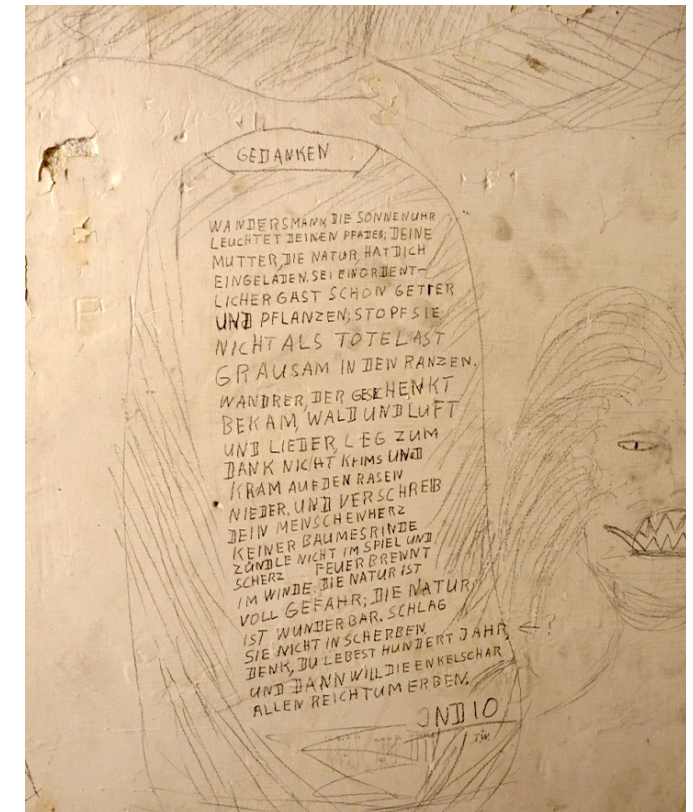 GEDANKEN
WANDERSMANN, DIE SONNENUHR
LEUCHTET DEINEN PFADEN; DEINE
MUTTER, DIE NATUR, HAT DICH
EINGELADEN. SEI EIN ORDENT-
LICHER GAST SCHON GETIER
UND PFLANZEN; STOPF SIE
NICHT ALS TOTE LAST
GRAUSAM IN DEN RANZEN.
WANDRER, DER GESCHENKT
BEKAM, WALD UND LUFT
UND LIEDER, LEG ZUM
DANK NICHT KRIMS UND
KRAM AUF DEN RASEN
NIEDER. UND VERSCHREIB
DEIN MENSCHENHERZ
KEINER BAUMESRINDE
ZÜNDLE NICHT IM SPIEL UND
SCHERZ FEUER BRENNT
IM WINDE. DIE NATUR IST
VOLL GEFAHR; DIE NATUR
IST WUNDERBAR. SCHLAG
SIE NICHT IN SCHERBEN
DENK, DU LEBEST HUNDERT JAHR, ←?
UND DANN WILL DIE ENKELSCHAR
ALLEN REICHTUM ERBEN.
INDIO